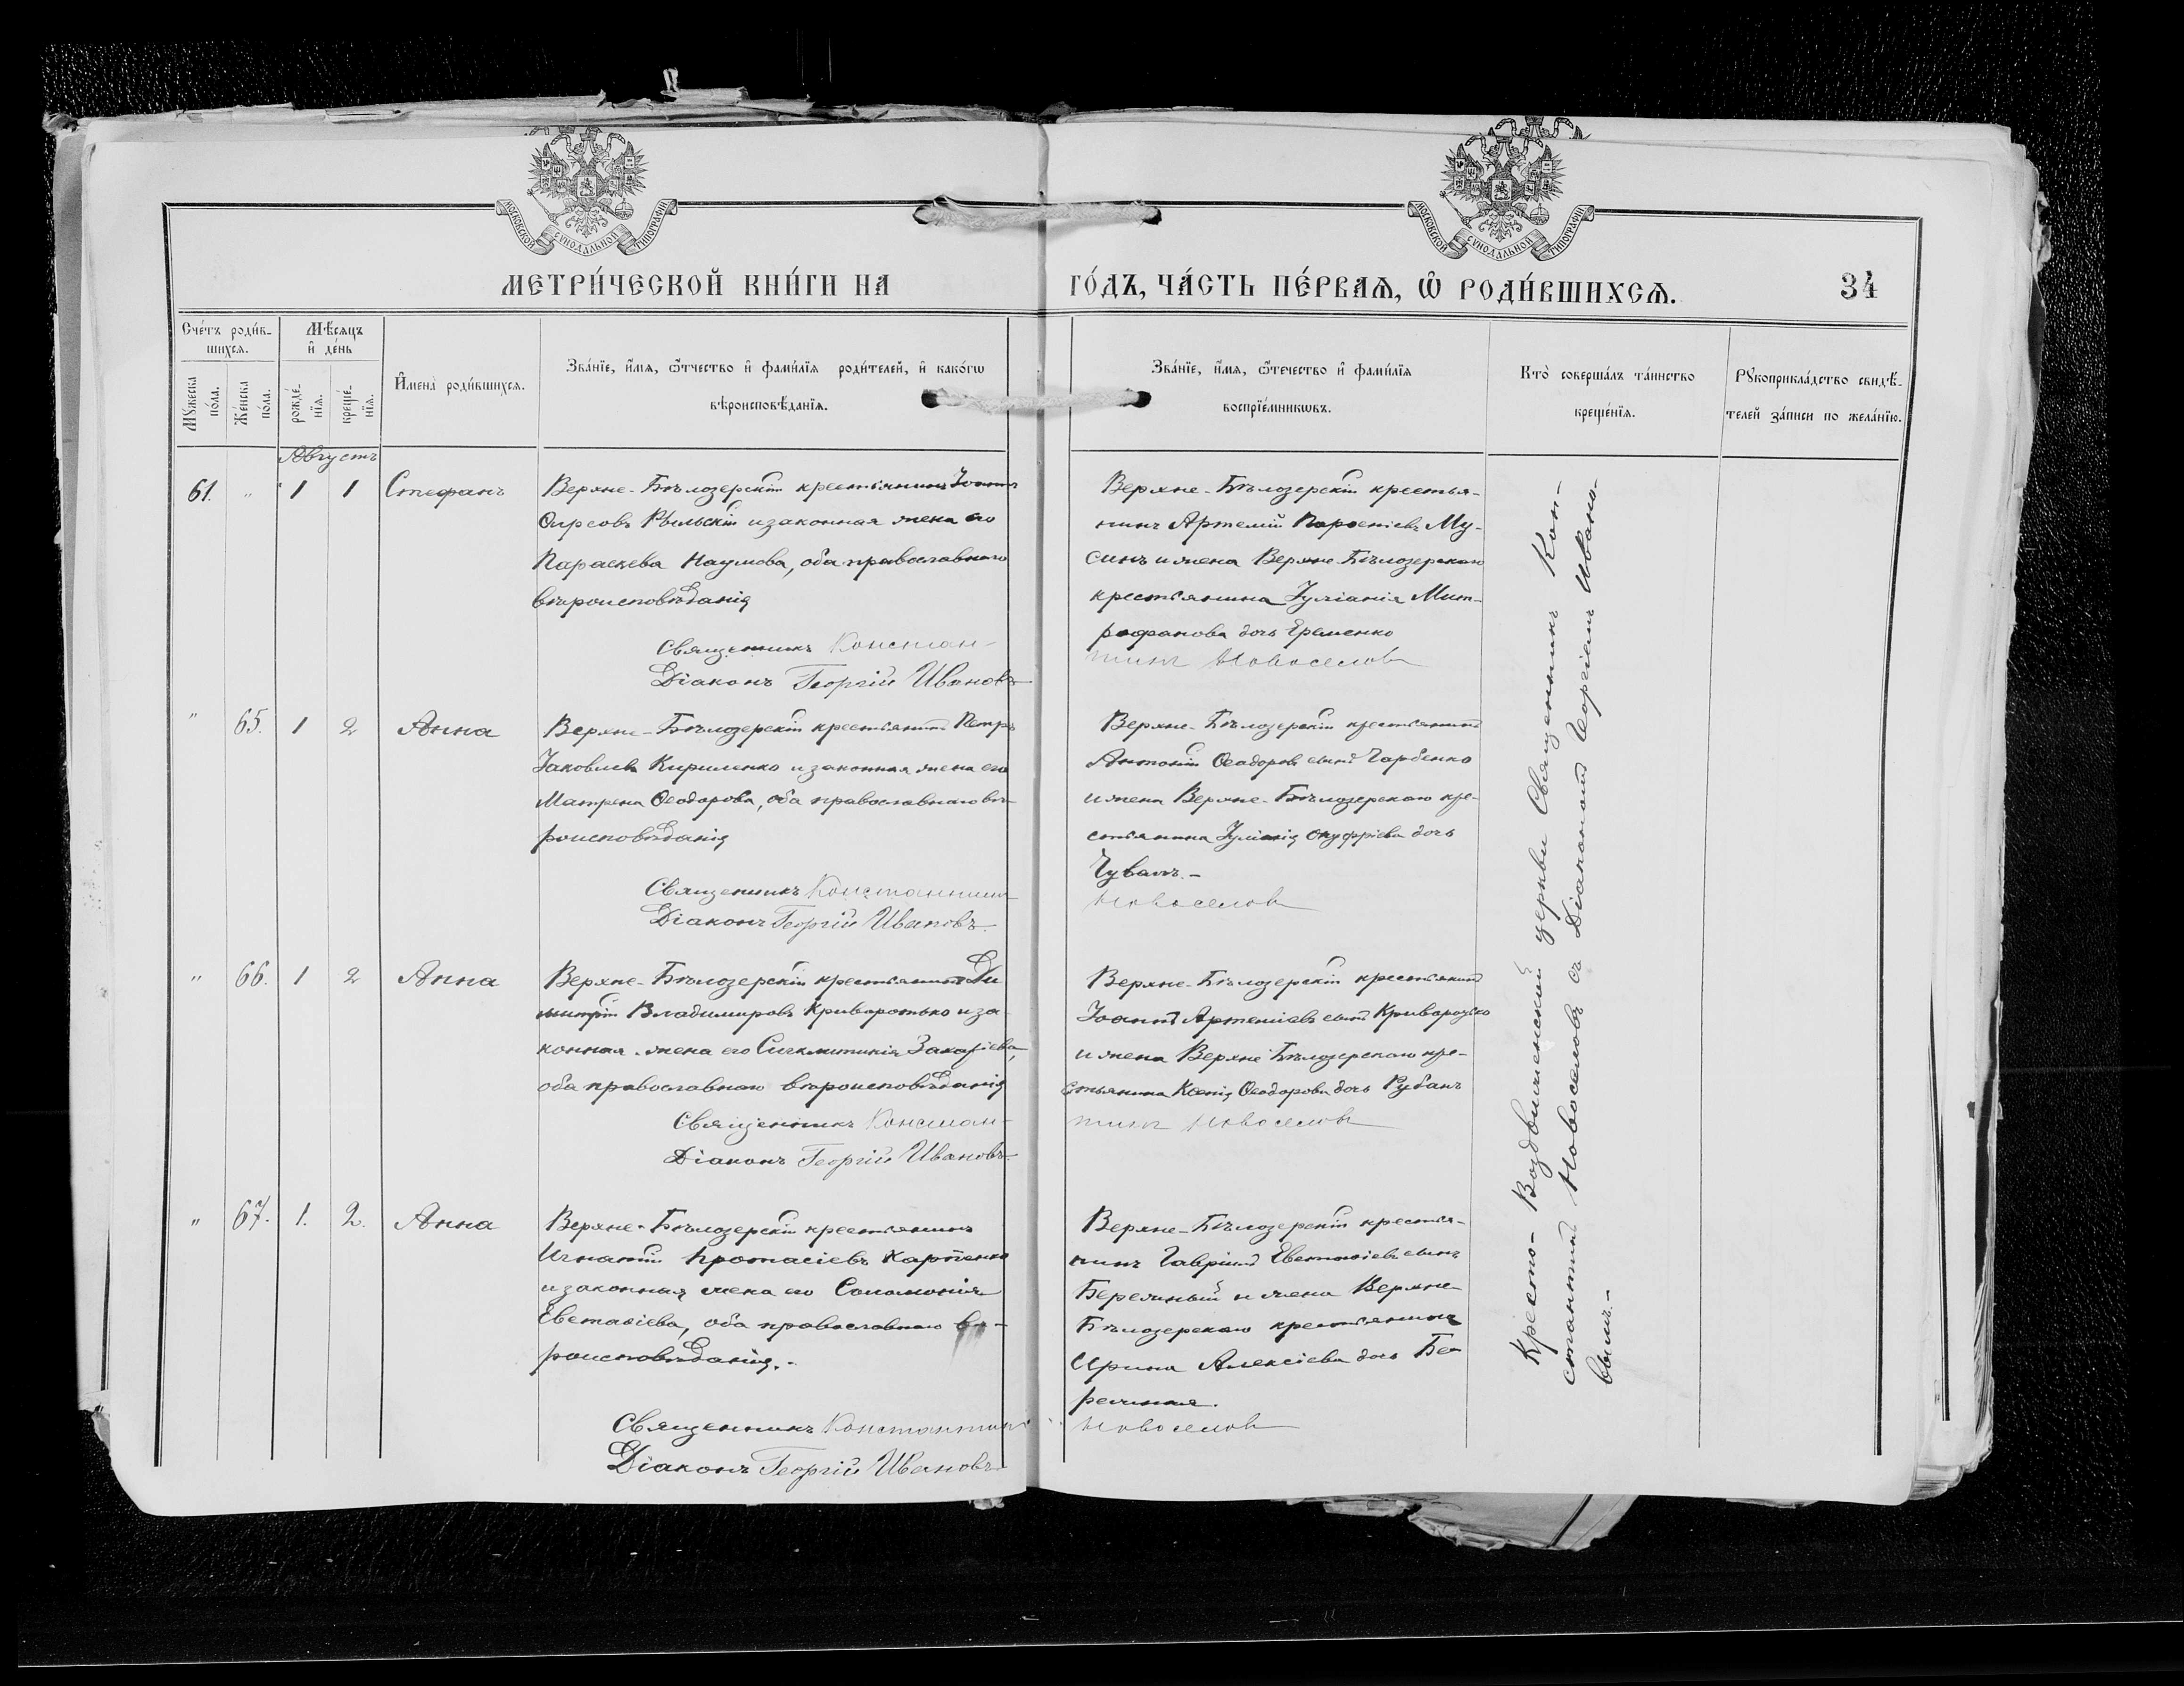 МОСКОВСКОЙ СѴНОДАЛЬНОЙ ТИПОГРАФІИ
МОСКОВСКОЙ СѴНОДАЛЬНОЙ ТИПОГРАФІИ
МЕТРИ́ЧЕСКОЙ КНИ́ГИ НА
ГО́ДЪ, ЧА́СТЬ ПЕ́РВАѦ, Ѡ РОДИ́ВШИХСѦ.
34
Сче́тъ роди́в-
шихсѧ.
Мꙋжеска по́ла.
Же́нска по́ла.
Мѣ́сѧцъ
и҆ де́нь
рожде́-
нїѧ.
креще́-
нїѧ.
И҆мена̀ роди́вшихсѧ.
Зва́нїе, и҆́мѧ, ѻ҆́тчество и҆ фами́лїѧ роди́телей, и҆ како́гѡ
вѣроисповѣ́данїѧ.
Зва́нїе, и҆́мѧ, ѻ҆́течество и҆ фами́лїѧ
воспрїе́мникѡвъ.
Кто̀ соверша́лъ та́инство
креще́нїѧ.
Рꙋкоприкла́дство свидѣ́-
телей за́писи по жела́нїю.
Августъ
61. " 1 1 Стефанъ
Верхне-Бѣлозерскій крестьянинъ Іоаннъ
Фирсовъ Рыльскій и законная жена его
Параскева Наумова, оба православнаго
вѣроисповѣданія
Священникъ Констан-
Діаконъ Георгій Ивановъ
Верхне-Бѣлозерскій крестья-
нинъ Артемій Пароеніевъ Му-
синъ и жена Верхне-Бѣлозерскаго
крестьянина Іуліанія Мит-
рофанова дочь Еременко
тинъ Новоселовъ
" 65. 1 2 Анна
Верхне-Бѣлозерскій крестьянинъ Петръ
Іаковлевъ Кириленко и законная жена его
Матрена Ѳеодорова, оба православнаго вѣ-
роисповѣданія
Священникъ Константинъ
Діаконъ Георгій Ивановъ
Верхне-Бѣлозерскій крестьянинъ
Антоній Ѳеодоровъ сынъ Гарбенко
и жена Верхне-Бѣлозерскаго кре-
стьянина Іуліанія Онуфріева дочь
Чуваль.-
Новоселовъ
" 66. 1 2 Анна
Верхне-Бѣлозерскій крестьянинъ Ди
митрій Владимировъ Криворотько и за-
конная жена его Сигклитикія Захаріева,
оба православнаго вѣроисповѣданія
Священникъ Констан-
Діаконъ Георгій Ивановъ
Верхне-Бѣлозерскій крестьянинъ
Іоаннъ Артеміевъ сынъ Криворотько
и жена Верхне Бѣлозерскаго кре-
стьянина Ксенія Ѳеодорова дочь Рубанъ
тинъ Новоселовъ
" 67. 1. 2. Анна
Верхне-Бѣлозерскій крестьянинъ
Игнатій Протасіевъ Карпенко
и законная жена его Соломонія
Евстаѳіева, оба православнаго вѣ-
роисповѣданія.-
Священникъ Константинъ
Діаконъ Георгій Ивановъ
Верхне-Бѣлозерскій крестья-
нинъ Гавріилъ Евстаѳіевъ сынъ
Бережный и жена Верхне-
Бѣлозерскаго крестьянина
Ирина Алексіева дочь Бе-
режная.
Новоселовъ
Кресто-Воздвиженской церкви Священникъ Кон-
стантинъ Новоселовъ съ Діакономъ Георгіемъ Ивано-
вымъ.-